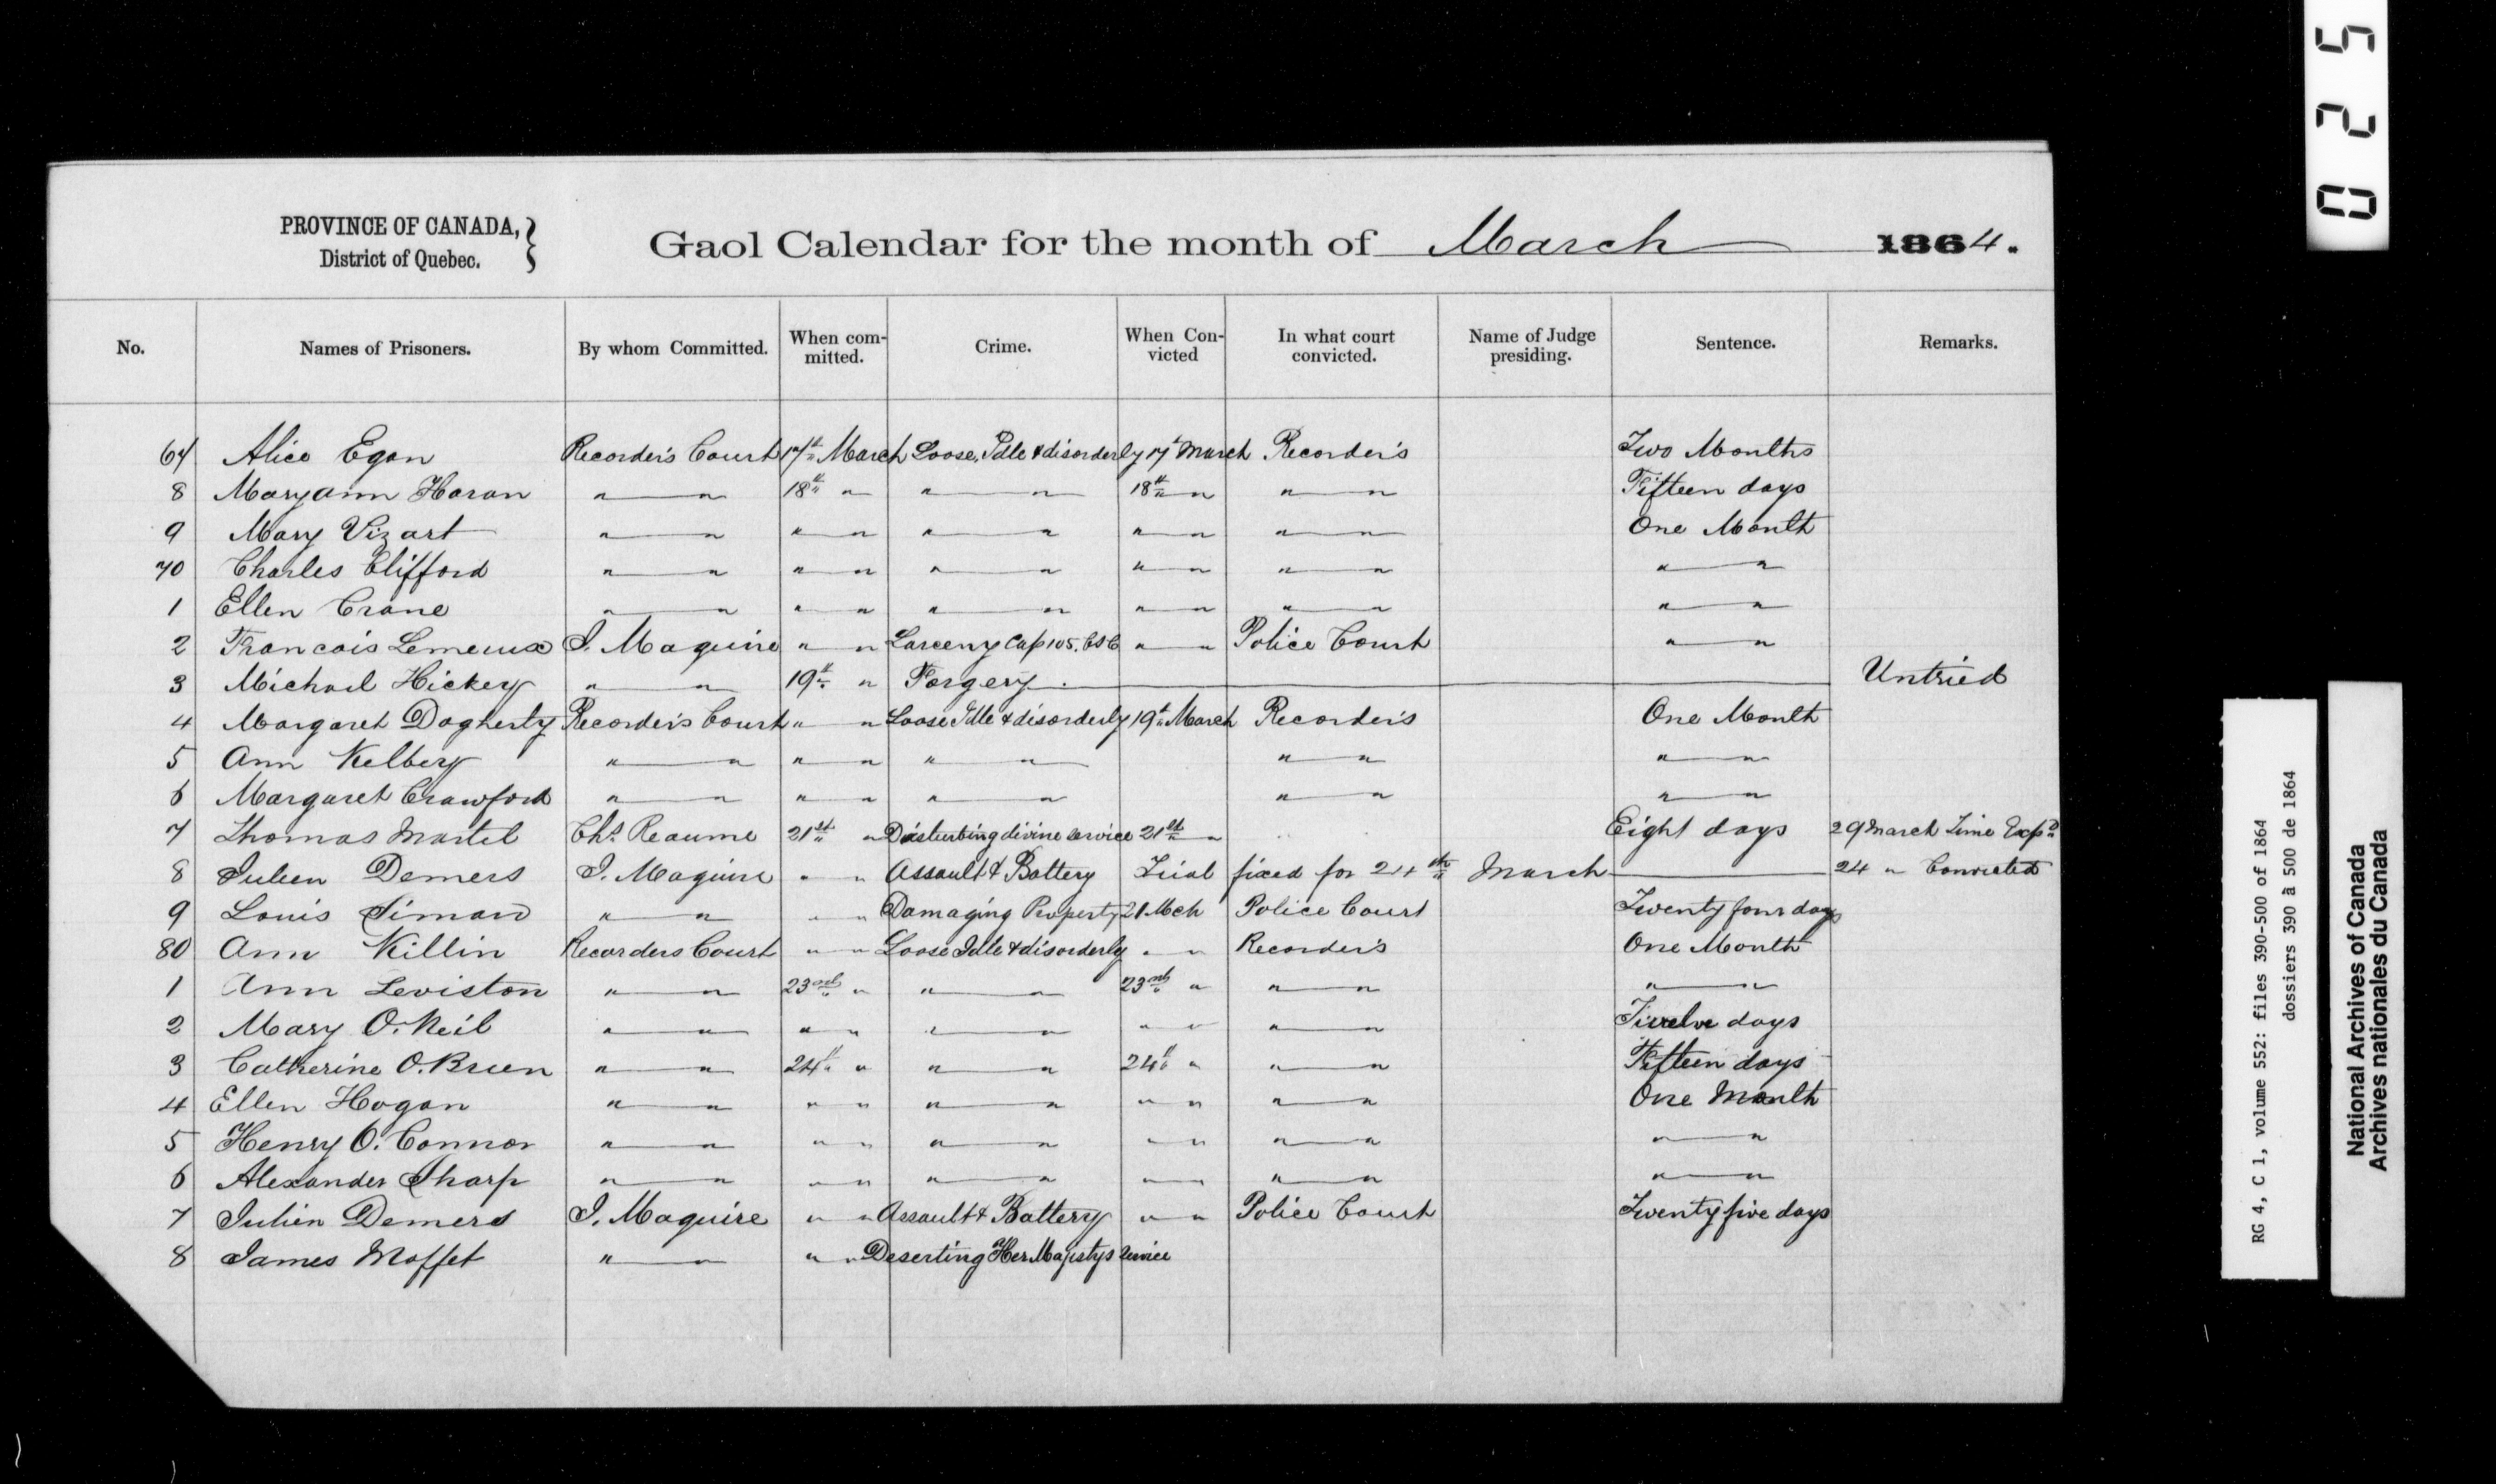 PROVINCE OF CANADA,
District of Quebec.
Gaol Calendar for the month of March 1864.
No. Names of Prisoners. By whom Committed. When committed. Crime. When Convicted In what court convicted. Name of Judge presiding. Sentence. Remarks.
67 Alice Egan Recorder's Court 17th March Loose, Idle & disorderly 17th March Recorder's Two Months
8 Maryann Horan " " 18th " " " 18th " " " Fifteen days
9 Mary Vizart " " " " " " " " " " One Month
70 Charles Clifford " " " " " " " " " " " "
1 Ellen Crane " " " " " " " " " " " "
2 Francois Lemeiux J. Maguire " " Larceny Cap 105. CSC " " Police Court " "
3 Michael Hickey " " 19th " Forgery. Untried
4 Margaret Dogherty Recorder's Court " " Loose Idle & disorderly 19th March Recorder's One Month
5 Ann Kelbery " " " " " " " " " "
6 Margaret Crawford " " " " " " " " " "
7 Thomas Martel Chs. Reaume 21st " Disturbing divine service 21st " Eight days 29 March Time Expd
8 Julien Demers J. Maguire " " Assault & Battery Trial fixed for 24th March 24 " Convicted
9 Louis Simard " " " " Damaging Property 21 Mch Police Court Twenty four days
80 Ann Killin Recorders Court " " Loose Idle & disorderly " " Recorder's One Month
1 Ann Leviston " " 23rd " " " 23rd " " " " "
2 Mary O.Neil " " " " " " " " " " Twelve days
3 Catherine O.Brien " " 24th " " " 24th " " " Fifteen days
4 Ellen Hogan " " " " " " " " " " One Month
5 Henry O. Connor " " " " " " " " " " " "
6 Alexander Sharp " " " " " " " " " " " "
7 Julien Demers J. Maguire " " Assault & Battery " " Police Court Twenty five days
8 James Moffet " " " " Deserting Her Majestys Service
025
RG 4, C 1, volume 552: files 390-500 of 1864
dossiers 390 à 500 de 1864
National Archives of Canada
Archives nationales du Canada